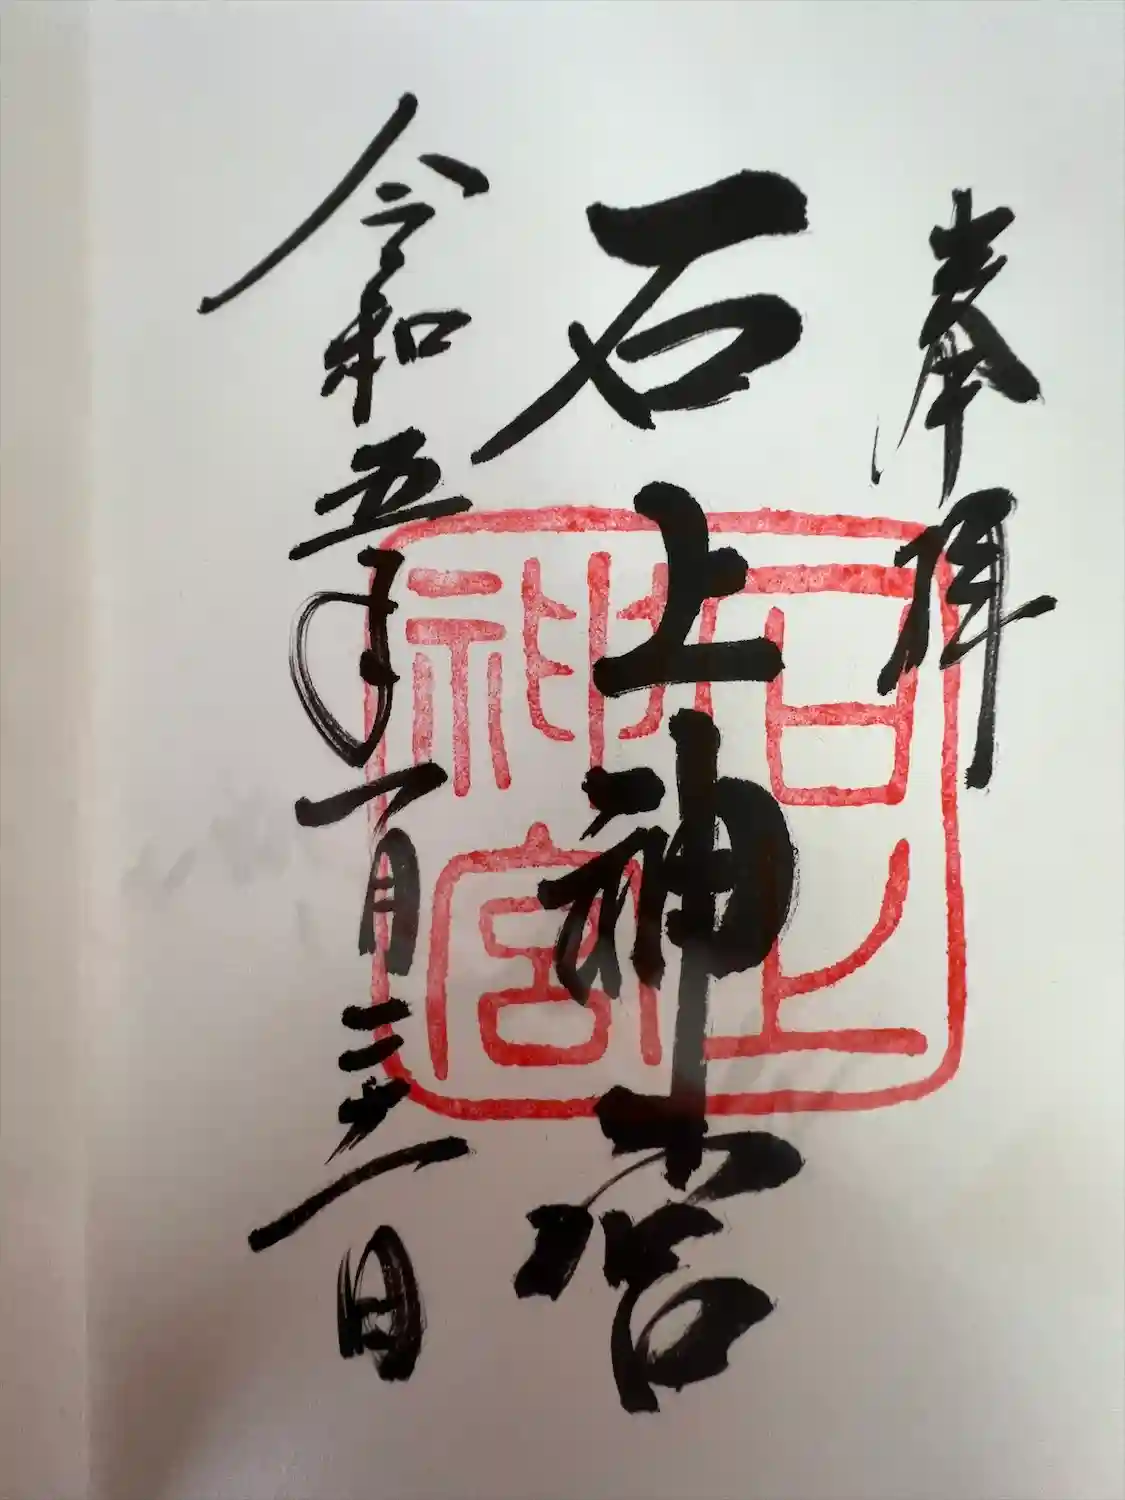 奉拝
石上神宮
令和五年一月日
石上
神宮